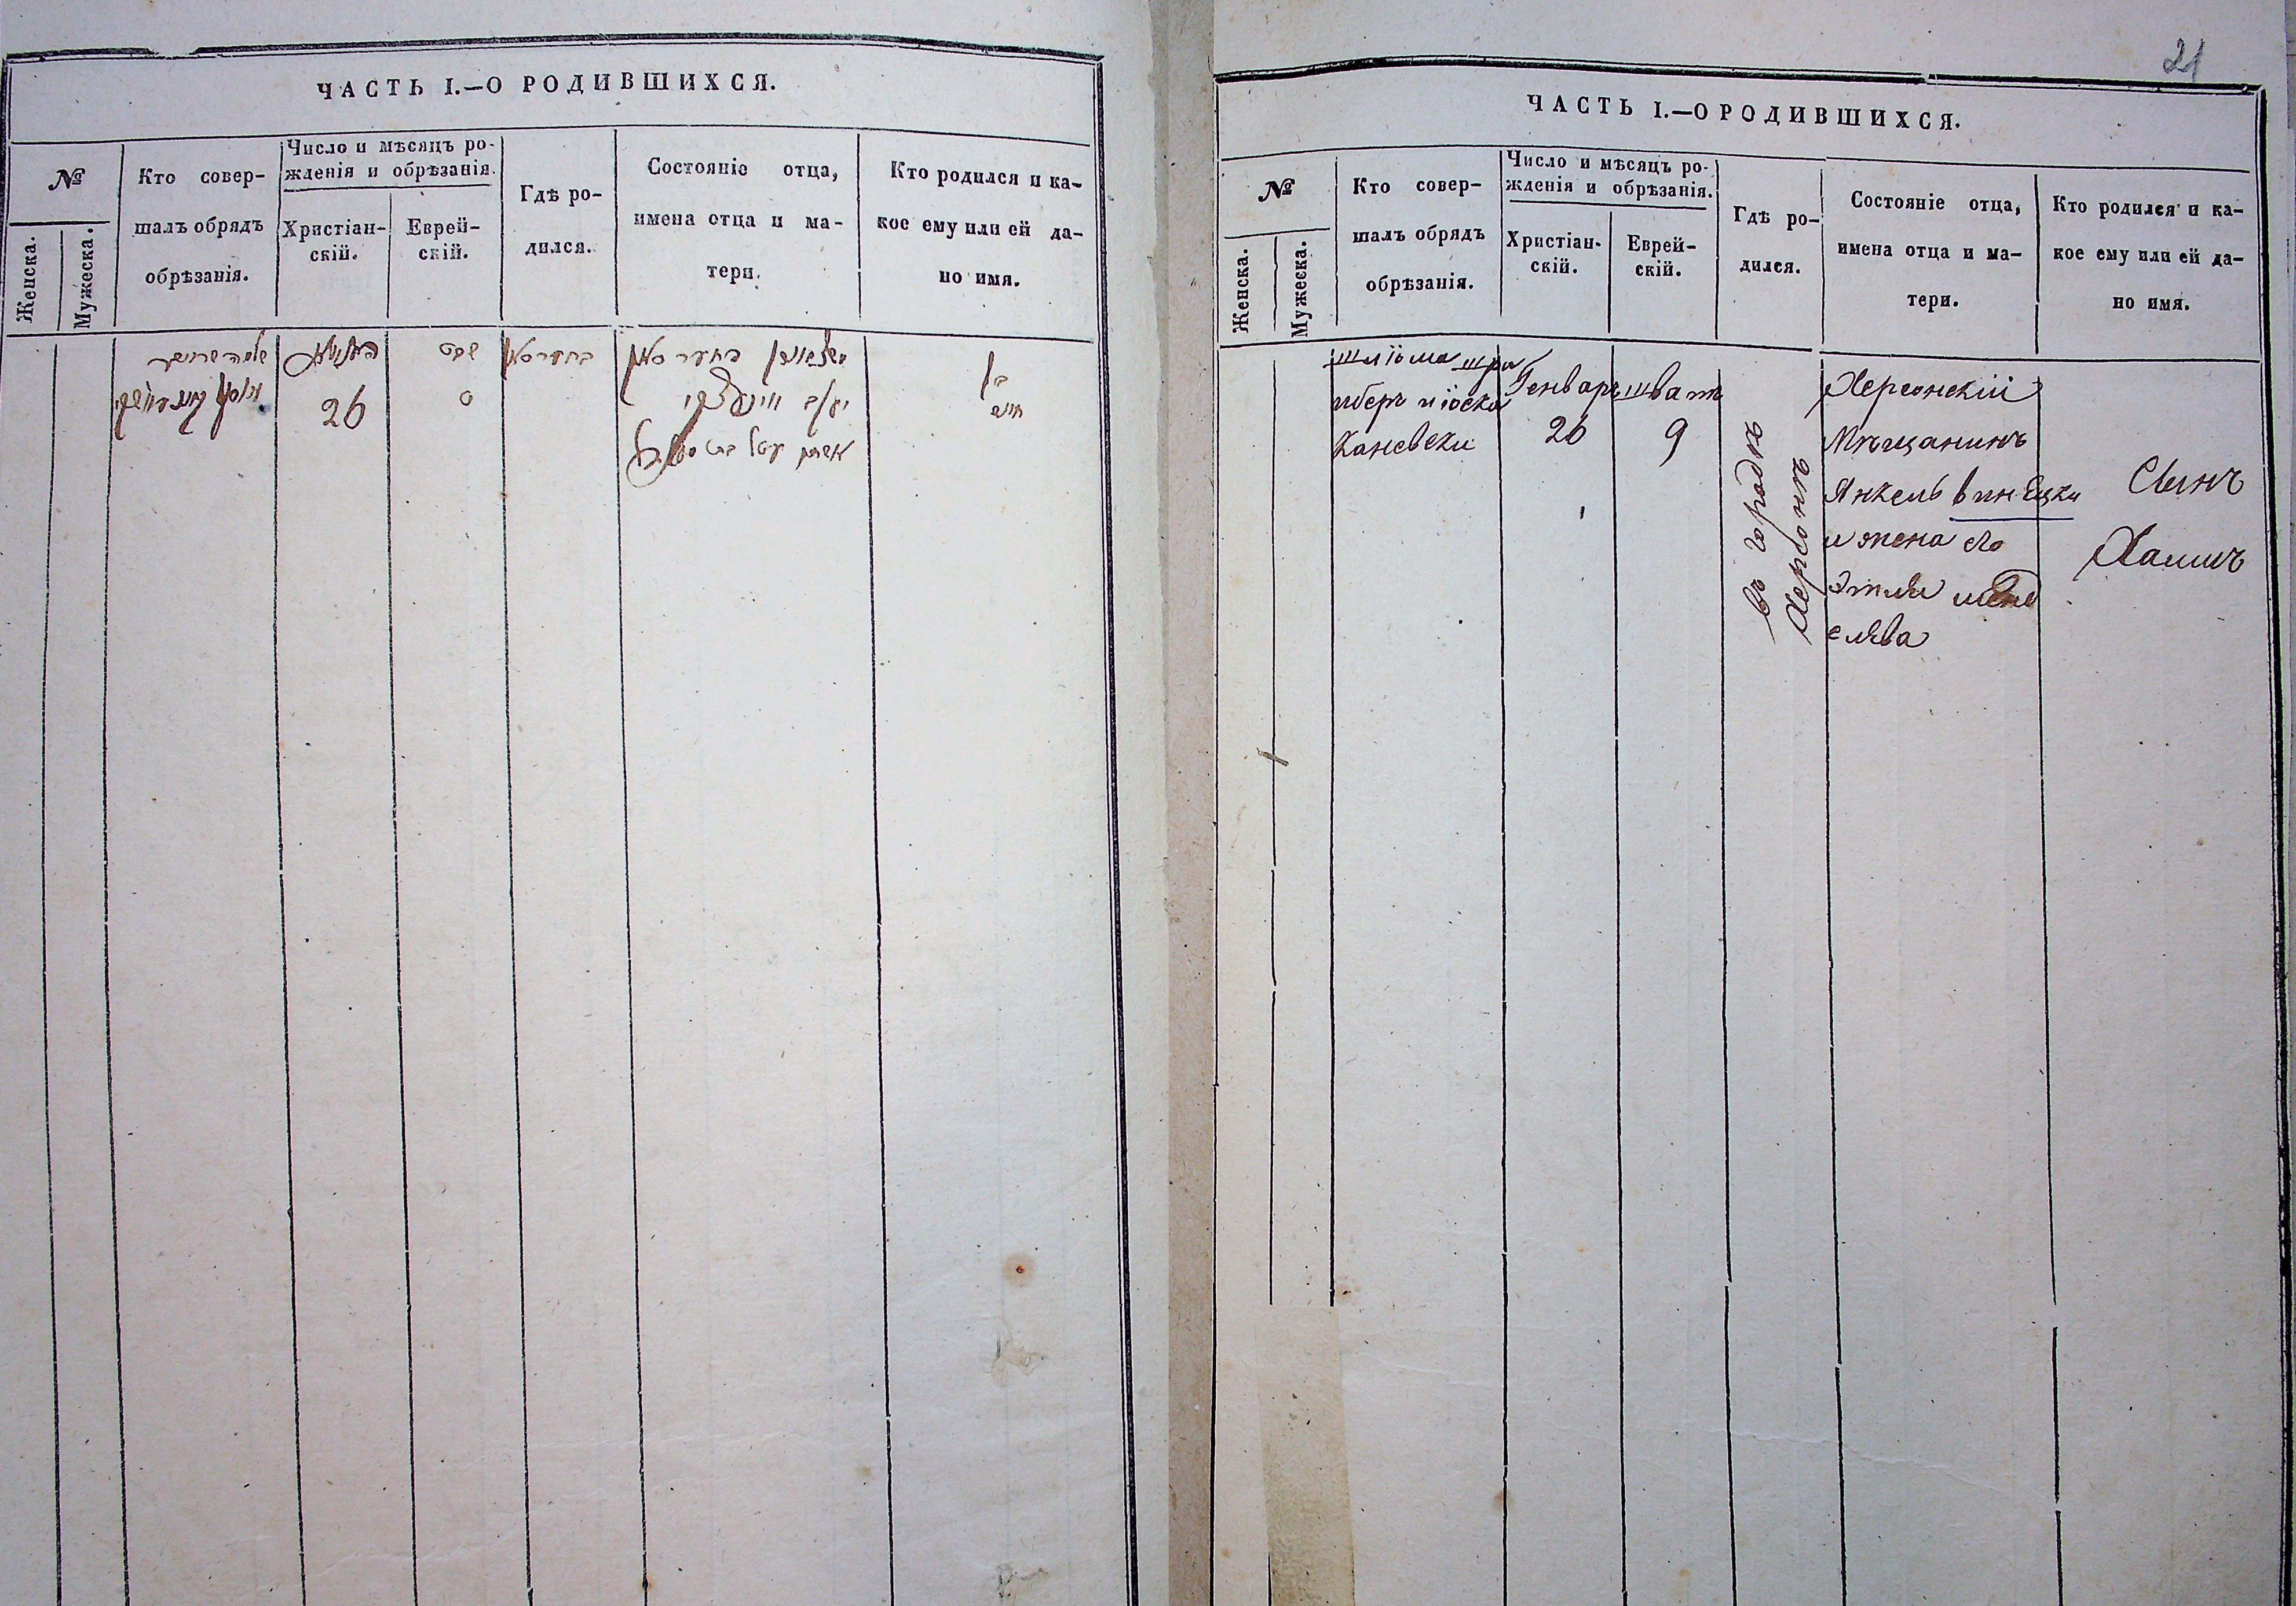 ЧАСТЬ I.—О РОДИВШИХСЯ.
№
Женска.
Мужеска.
Кто совер-
шалъ обрядъ
обрѣзанія.
Число и мѣсяцъ ро-
жденія и обрѣзанія.
Христіан-
скій.
Еврей-
скій.
Гдѣ ро-
дился.
Состояніе отца,
имена отца и ма-
тери.
Кто родился и ка-
кое ему или ей да-
но имя.
26
שבט
ט
בן
21
ЧАСТЬ I.—О РОДИВШИХСЯ.
№
Женска.
Мужеска.
Кто совер-
шалъ обрядъ
обрѣзанія.
Число и мѣсяцъ ро-
жденія и обрѣзанія.
Христіан-
скій.
Еврей-
скій.
Гдѣ ро-
дился.
Состояніе отца,
имена отца и ма-
тери.
Кто родился и ка-
кое ему или ей да-
но имя.
шліома шрай
иберъ и іоска
Каневски
Генварь
26
шватъ
9
въ городѣ
Херсонѣ
Херсонскій
Мѣщанинъ
Янкель Винецки
и жена его
Этля
елева
Сынъ
Хаимъ